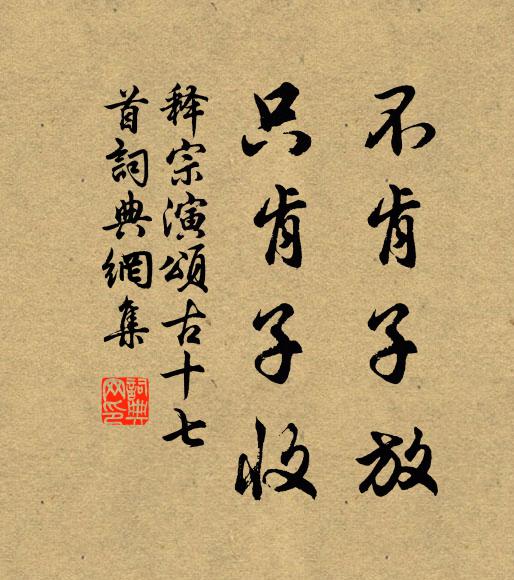 不肯子放
只肯子收
释宗演頌古十七
首詞典網集
詞典
网印